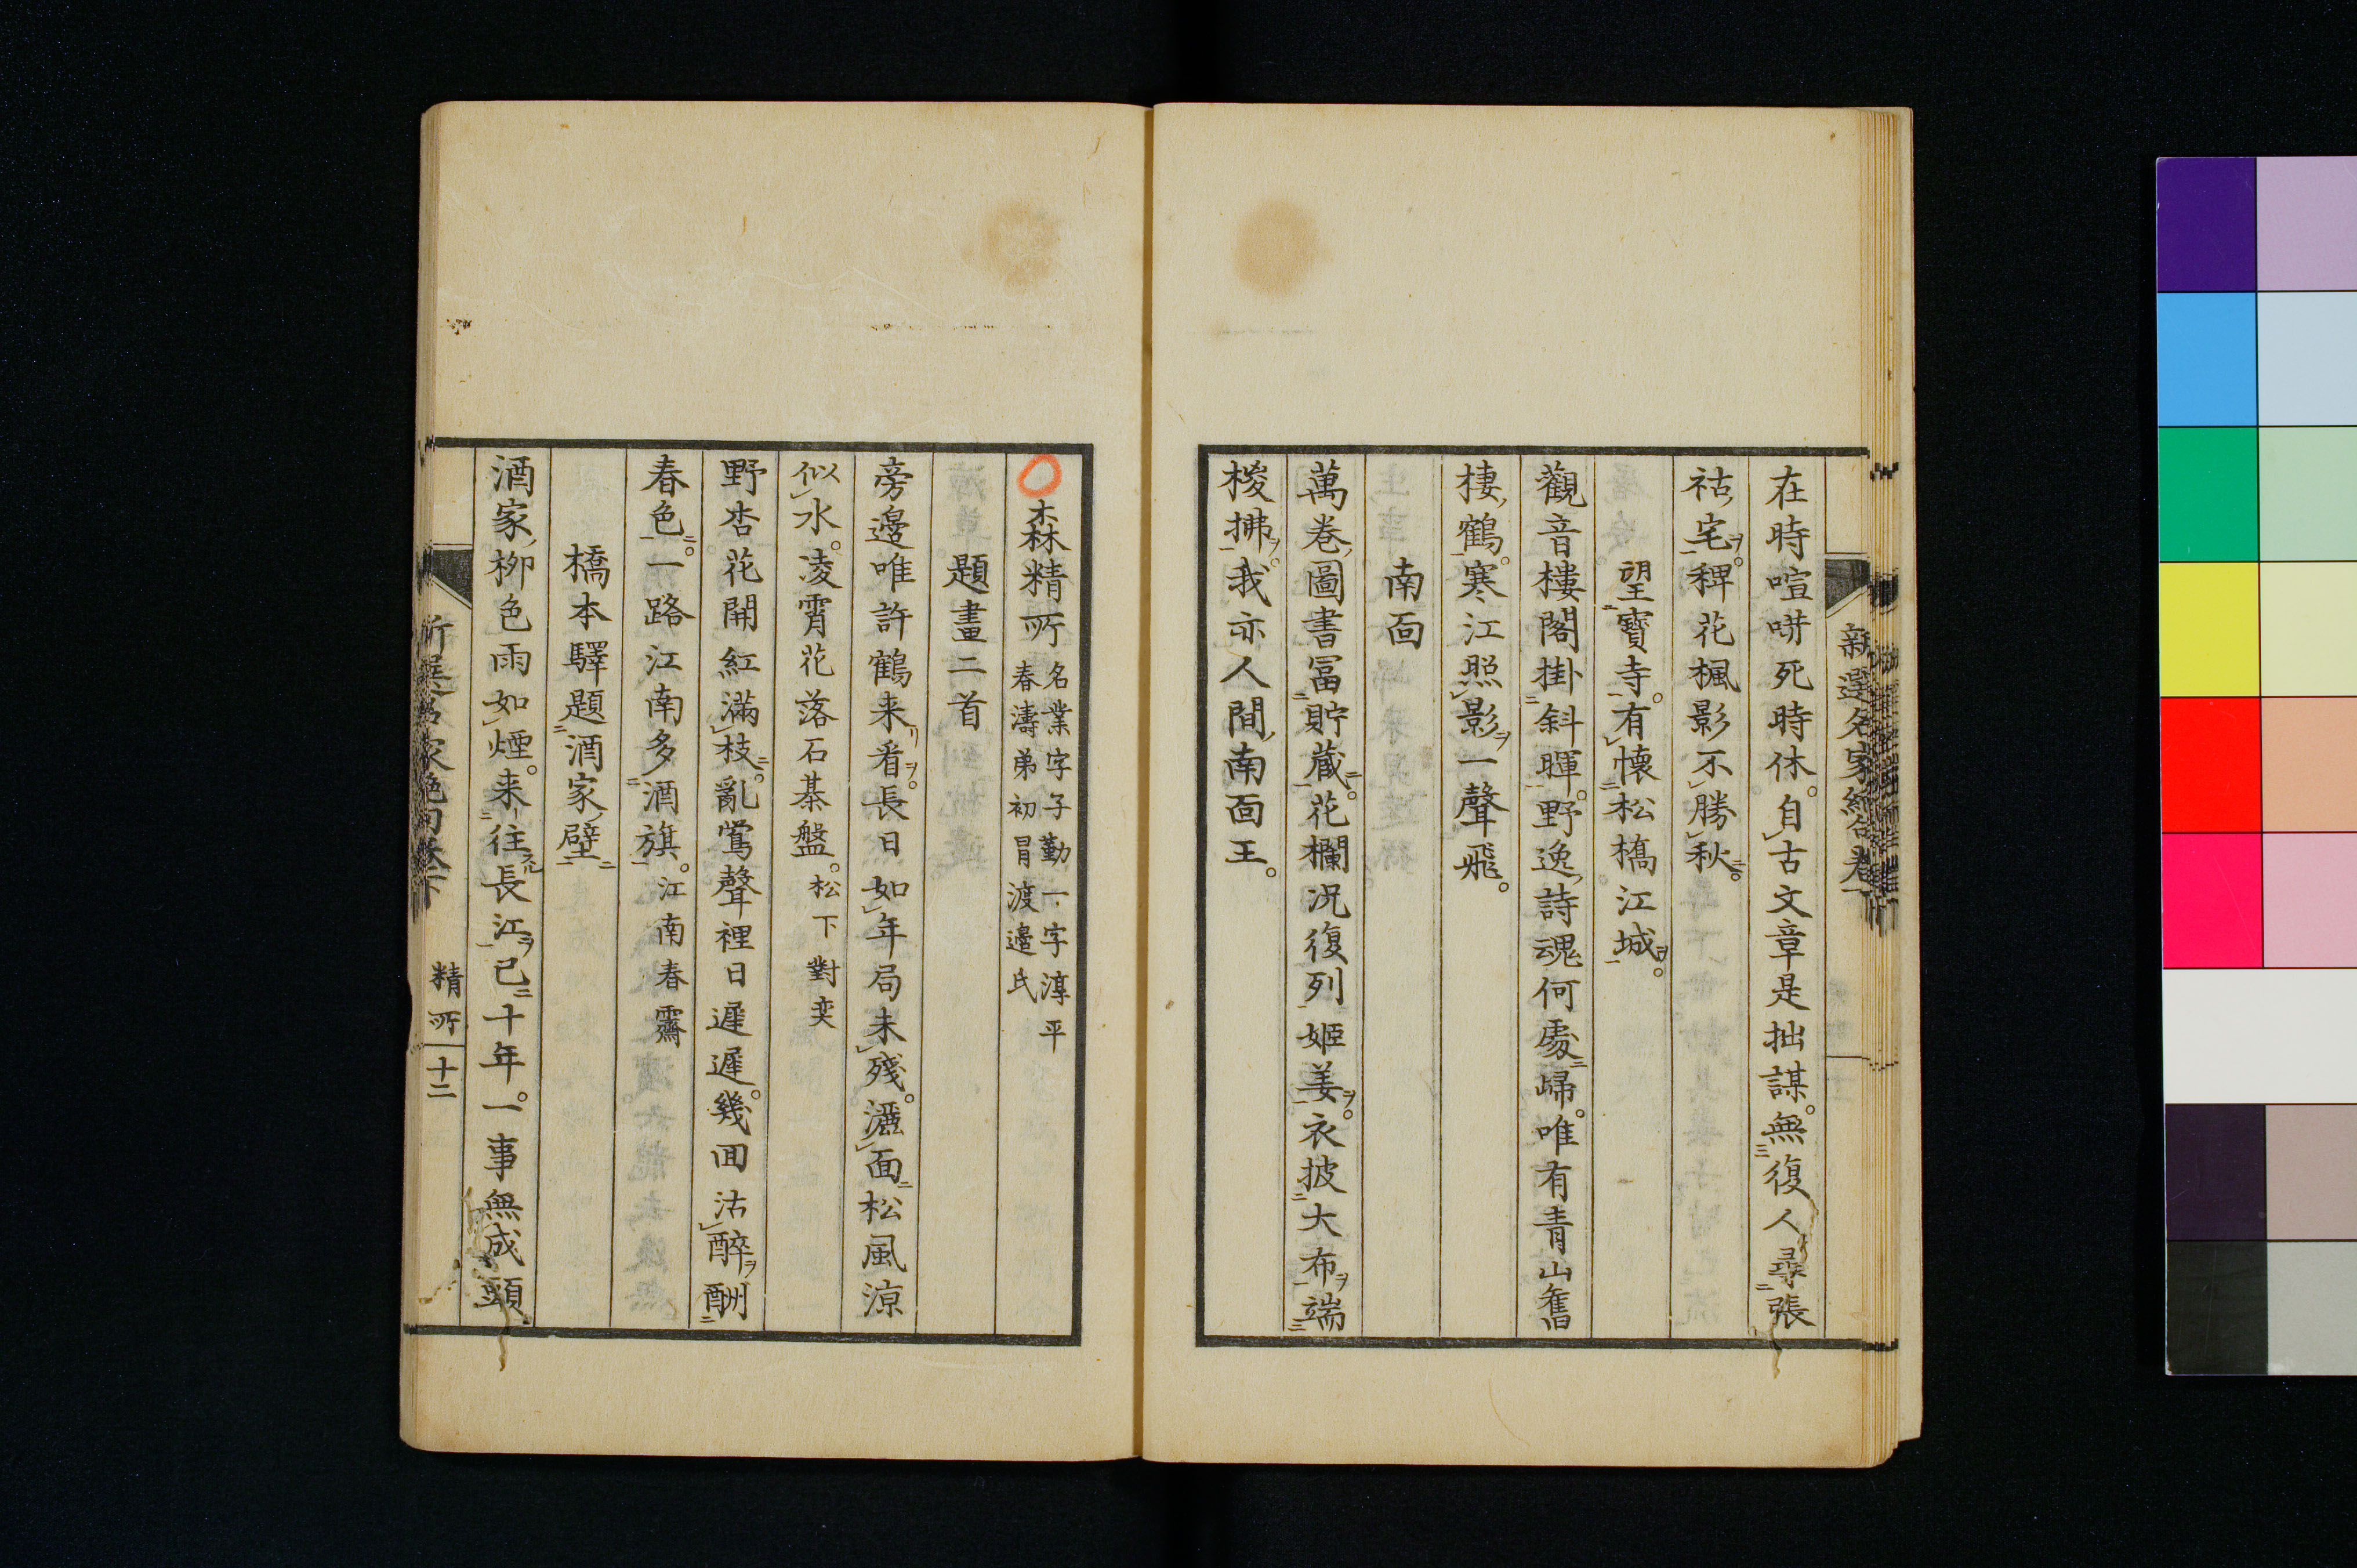 在時喧哄死時休。自古文章是拙謀。無復人尋張
祜宅。稗花楓影不勝秋。
望寶寺。有懷松橋江城。
觀音樓閣掛斜暉。野逸詩魂何處歸。唯有青山舊
棲鶴。寒江照影一聲飛。
南面
萬卷圖書冨貯蔵。花欄況復列姬姜。衣披大布端
梭拂。我亦人間南面王。
森精所 名業字子勤一字淳平
春濤弟初冒渡邉氏
題畫二首
旁邊唯許鶴来看。長日如年局未殘。灑面松風涼
似水。凌霄花落石棊盤。松下對奕
野杏花開紅滿枝。亂鶯聲裡日遲遲。幾回沽醉酬
春色。一路江南多酒旗。江南春霽
橋本驛題酒家壁
酒家柳色雨如煙。来往長江已十年。一事無成頭
精所 十二